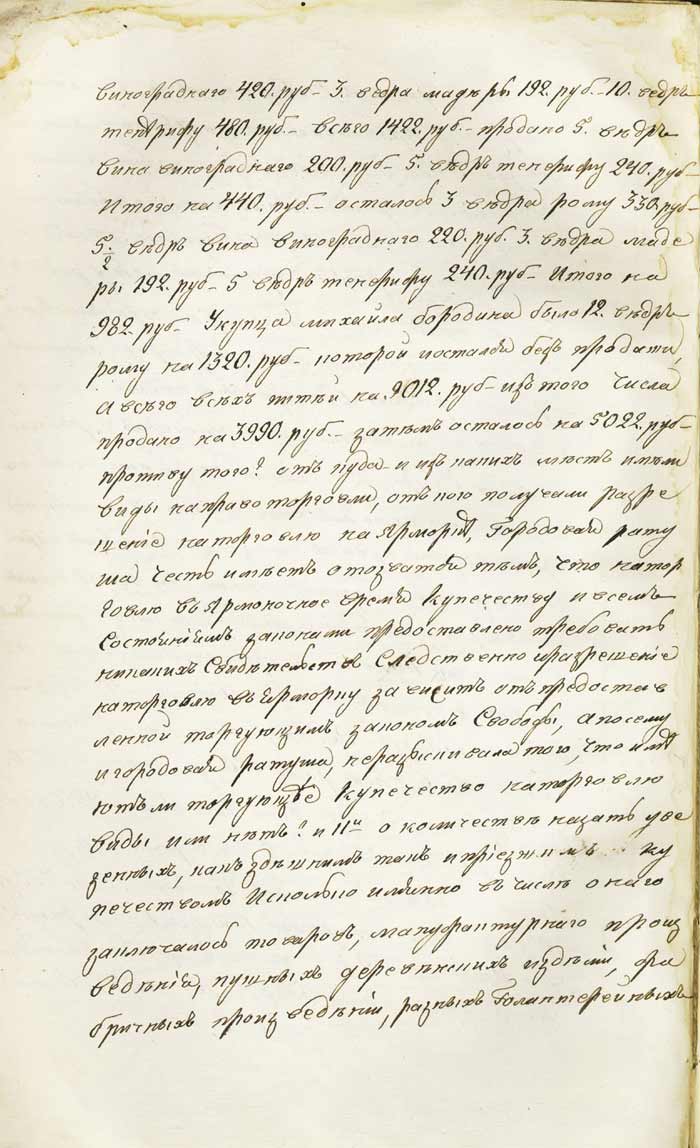 винограднаго 420. руб– 3. ведра мадеры 192. руб.– 10. ведръ
тенерифу 480. руб.– всѣго 1422. руб.– продано 5. вѣдръ
вина винограднаго 200. руб– 5. вѣдръ тенерифу 240. руб–
Итого на 440. руб.– осталось 3 вѣдра рому 330. руб–
5 1/2 вѣдръ вина винограднаго 220. руб. 3. вѣдра маде
ры 192. руб– 5 вѣдръ тенерифу 240. руб– Итого на
982. руб– У купца михайла бородина было 12. вѣдръ
рому на 1320. руб– которой и осталсй безъ продажи,
А всѣго всѣхъ питей на 9012. руб– изъ того числа
продано на 3990. руб.– затѣмъ осталось на 5022. руб–
противу того? отъ куда и изъ какихъ мѣстъ имѣли
виды на право торговли, отъ кого получали разре
шеніе на торговлю на Ярморкѣ, Городовай рату
ша честь имѣетъ отозватсй тѣмъ, что на тор
говлю въ Ярмоночное время Купечеству и всемъ
Состояніймъ законами предоставлено требовать
никакихъ Свидѣтельствъ Следственно и разрешеніе
на торговлю въ Ярморку зависитъ отъ предостав
ленной торгующимъ закономъ Свободы, а посему
и городовай ратуша, неразъискивала того, что имѣ
ютъ ли торгующѣе Купечество на торговлю
виды или нѣтъ? и 11е о количествѣ казать уве
зенныхъ, какъ здѣшнимъ такъ и пріезжимъ ку
печествомъ Исколько имянно въ числѣ онаго
заключалось товаровъ, мануфактурнаго произ
ведѣнія, пушныхъ деревѣнскихъ издѣлій, фа
бричныхъ произведѣній, разныхъ Галантерейныхъ